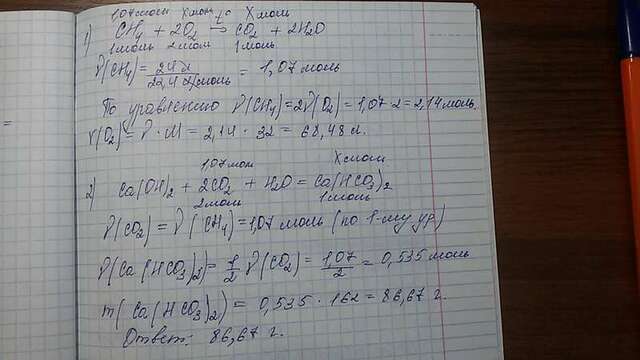 1,07моль Xмоль t° Xмоль
1) CH4 + 2O2 → CO2 + 2H2O
1моль 2моль 1моль
ν(CH4) = 24л / 22,4 л/моль = 1,07 моль
По уравнению ν(CH4) = 2ν(O2) = 1,07·2 = 2,14моль.
V(O2) = ν · M = 2,14 · 32 = 68,48 л.
1,07моль Xмоль
2) Ca(OH)2 + 2CO2 + H2O = Ca(HCO3)2
2моль 1моль
ν(CO2) = ν(CH4) = 1,07 моль (по 1-му ур)
ν(Ca(HCO3)2) = 1/2 ν(CO2) = 1,07/2 = 0,535 моль
m(Ca(HCO3)2) = 0,535 · 162 = 86,67 г.
Ответ: 86,67 г.
=